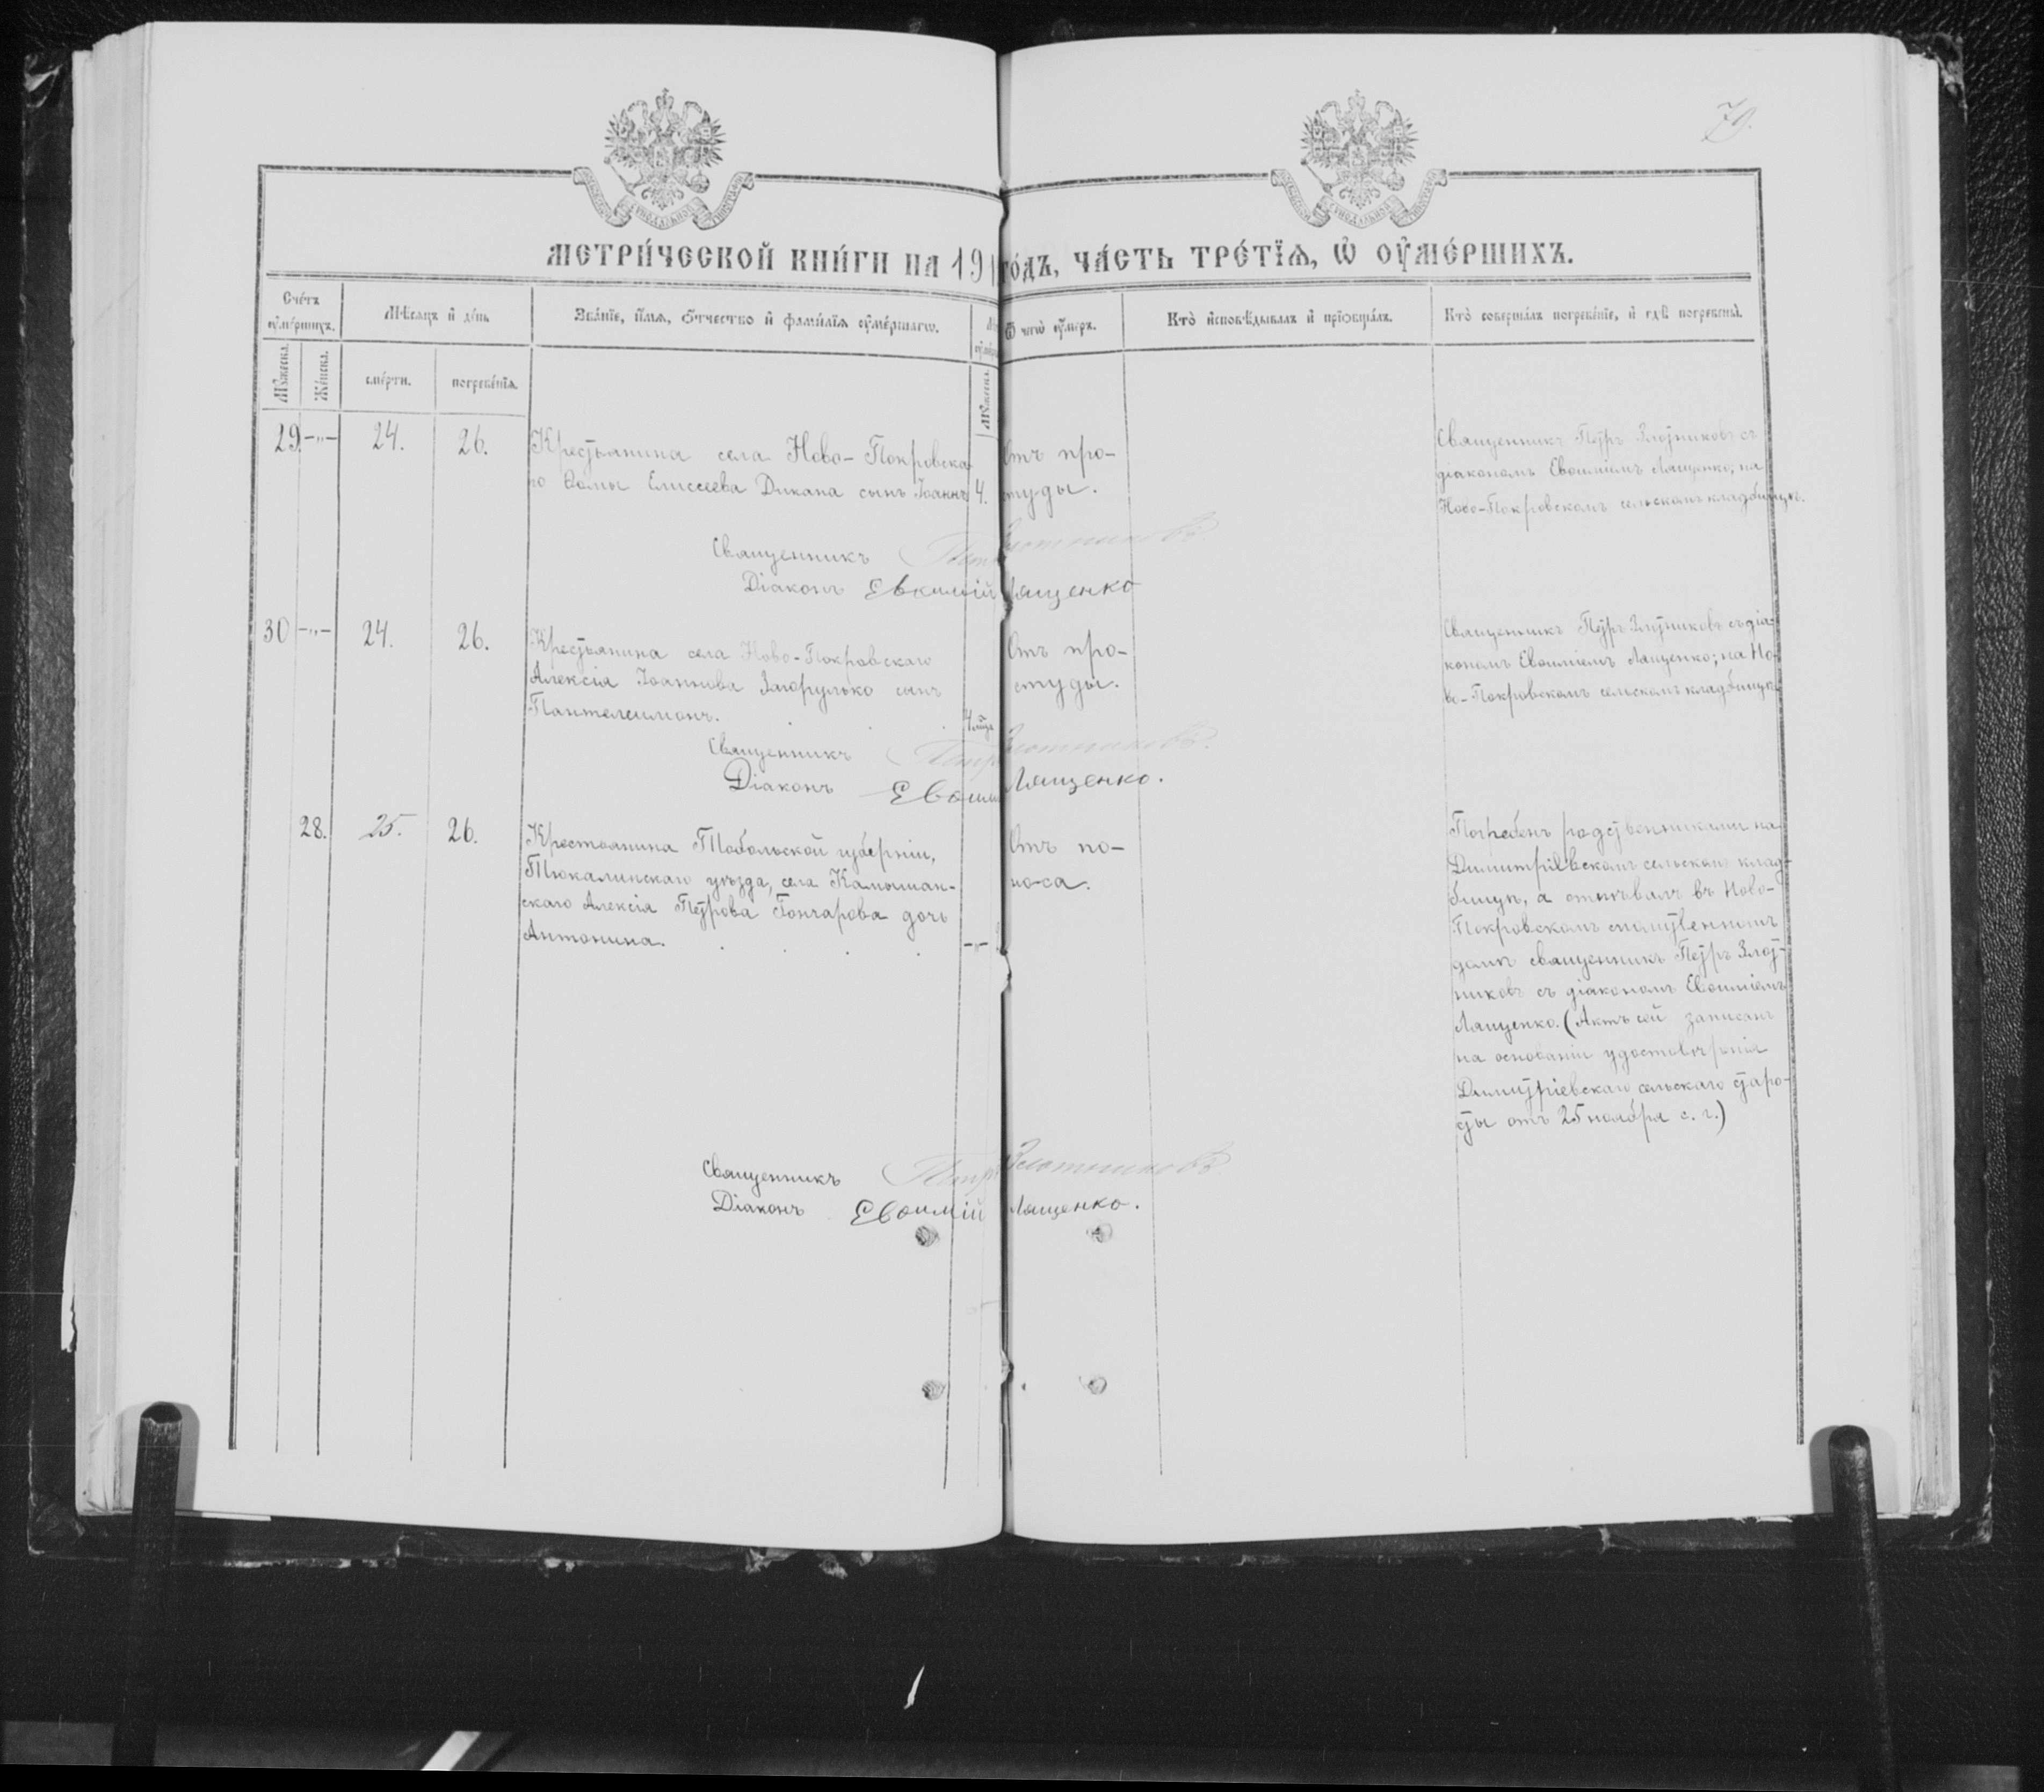 79.
МЕТРИ́ЧЕСКОЙ КНИ́ГИ НА 191 ГО́ДЪ, ЧА́СТЬ ТРЕ́ТЇѦ, Ѡ҆ ОУ҆МЕ́РШИХЪ.
Сче́тъ оу҆ме́ршихъ.
Мѣ́сяцъ и҆ де́нь
Зва́нїе, и҆́мѧ, ѻ҆́тчество и҆ фами́лїѧ оу҆ме́ршагѡ.
Ѿ чегѡ̀ оу҆́меръ.
Кто̀ и҆сповѣ́дывалъ и҆ прїѡбща́лъ.
Кто̀ соверша́лъ погребе́нїе, и҆ гдѣ̀ погребены̀.
Мꙋ́жеска.
Же́нска.
сме́рти.
погребе́нїѧ.
Мꙋ́жеска.
29. -"- 24. 26.
Крестьянина села Ново-Покровска-
го Ѳомы Елисеева Дикана сынъ Іоаннъ 4.
Отъ про-
студы.
Священникъ Петръ Злотниковъ съ
діакономъ Евѳиміемъ Лященко; на
Ново-Покровскомъ сельскомъ кладбищѣ.
Священникъ Петръ Злотниковъ.
Діаконъ Евѳимій Лященко
30 -"- 24. 26.
Крестьянина села Ново-Покровскаго
Алексія Іоаннова Загорулько сынъ
Пантелеимонъ.
Отъ про-
студы.
Священникъ Петръ Злотниковъ съ діа-
кономъ Евѳиміемъ Лященко; на Но-
во-Покровскомъ сельскомъ кладбищѣ
Священникъ Петръ Злотниковъ.
Діаконъ Евѳим Лященко.
28. 25. 26.
Крестьянина Тобольской губерніи,
Тюкалинскаго уѣзда, села Камышан-
скаго Алексія Петрова Гончарова дочь
Антонина. -"-
Отъ по-
носа.
Погребенъ родственниками на
Димитріевскомъ сельскомъ клад-
бищѣ, а отпѣвалъ въ Ново-
Покровскомъ молитвенномъ
домѣ священникъ Петръ Злот-
никовъ съ діакономъ Евѳиміемъ
Лященко. (Актъ сей записанъ
на основаніи удостовѣренія
Димитріевскаго сельскаго старо-
сты отъ 25 ноября с. г.)
Священникъ Петръ Злотниковъ
Діаконъ Евѳимій Лященко.